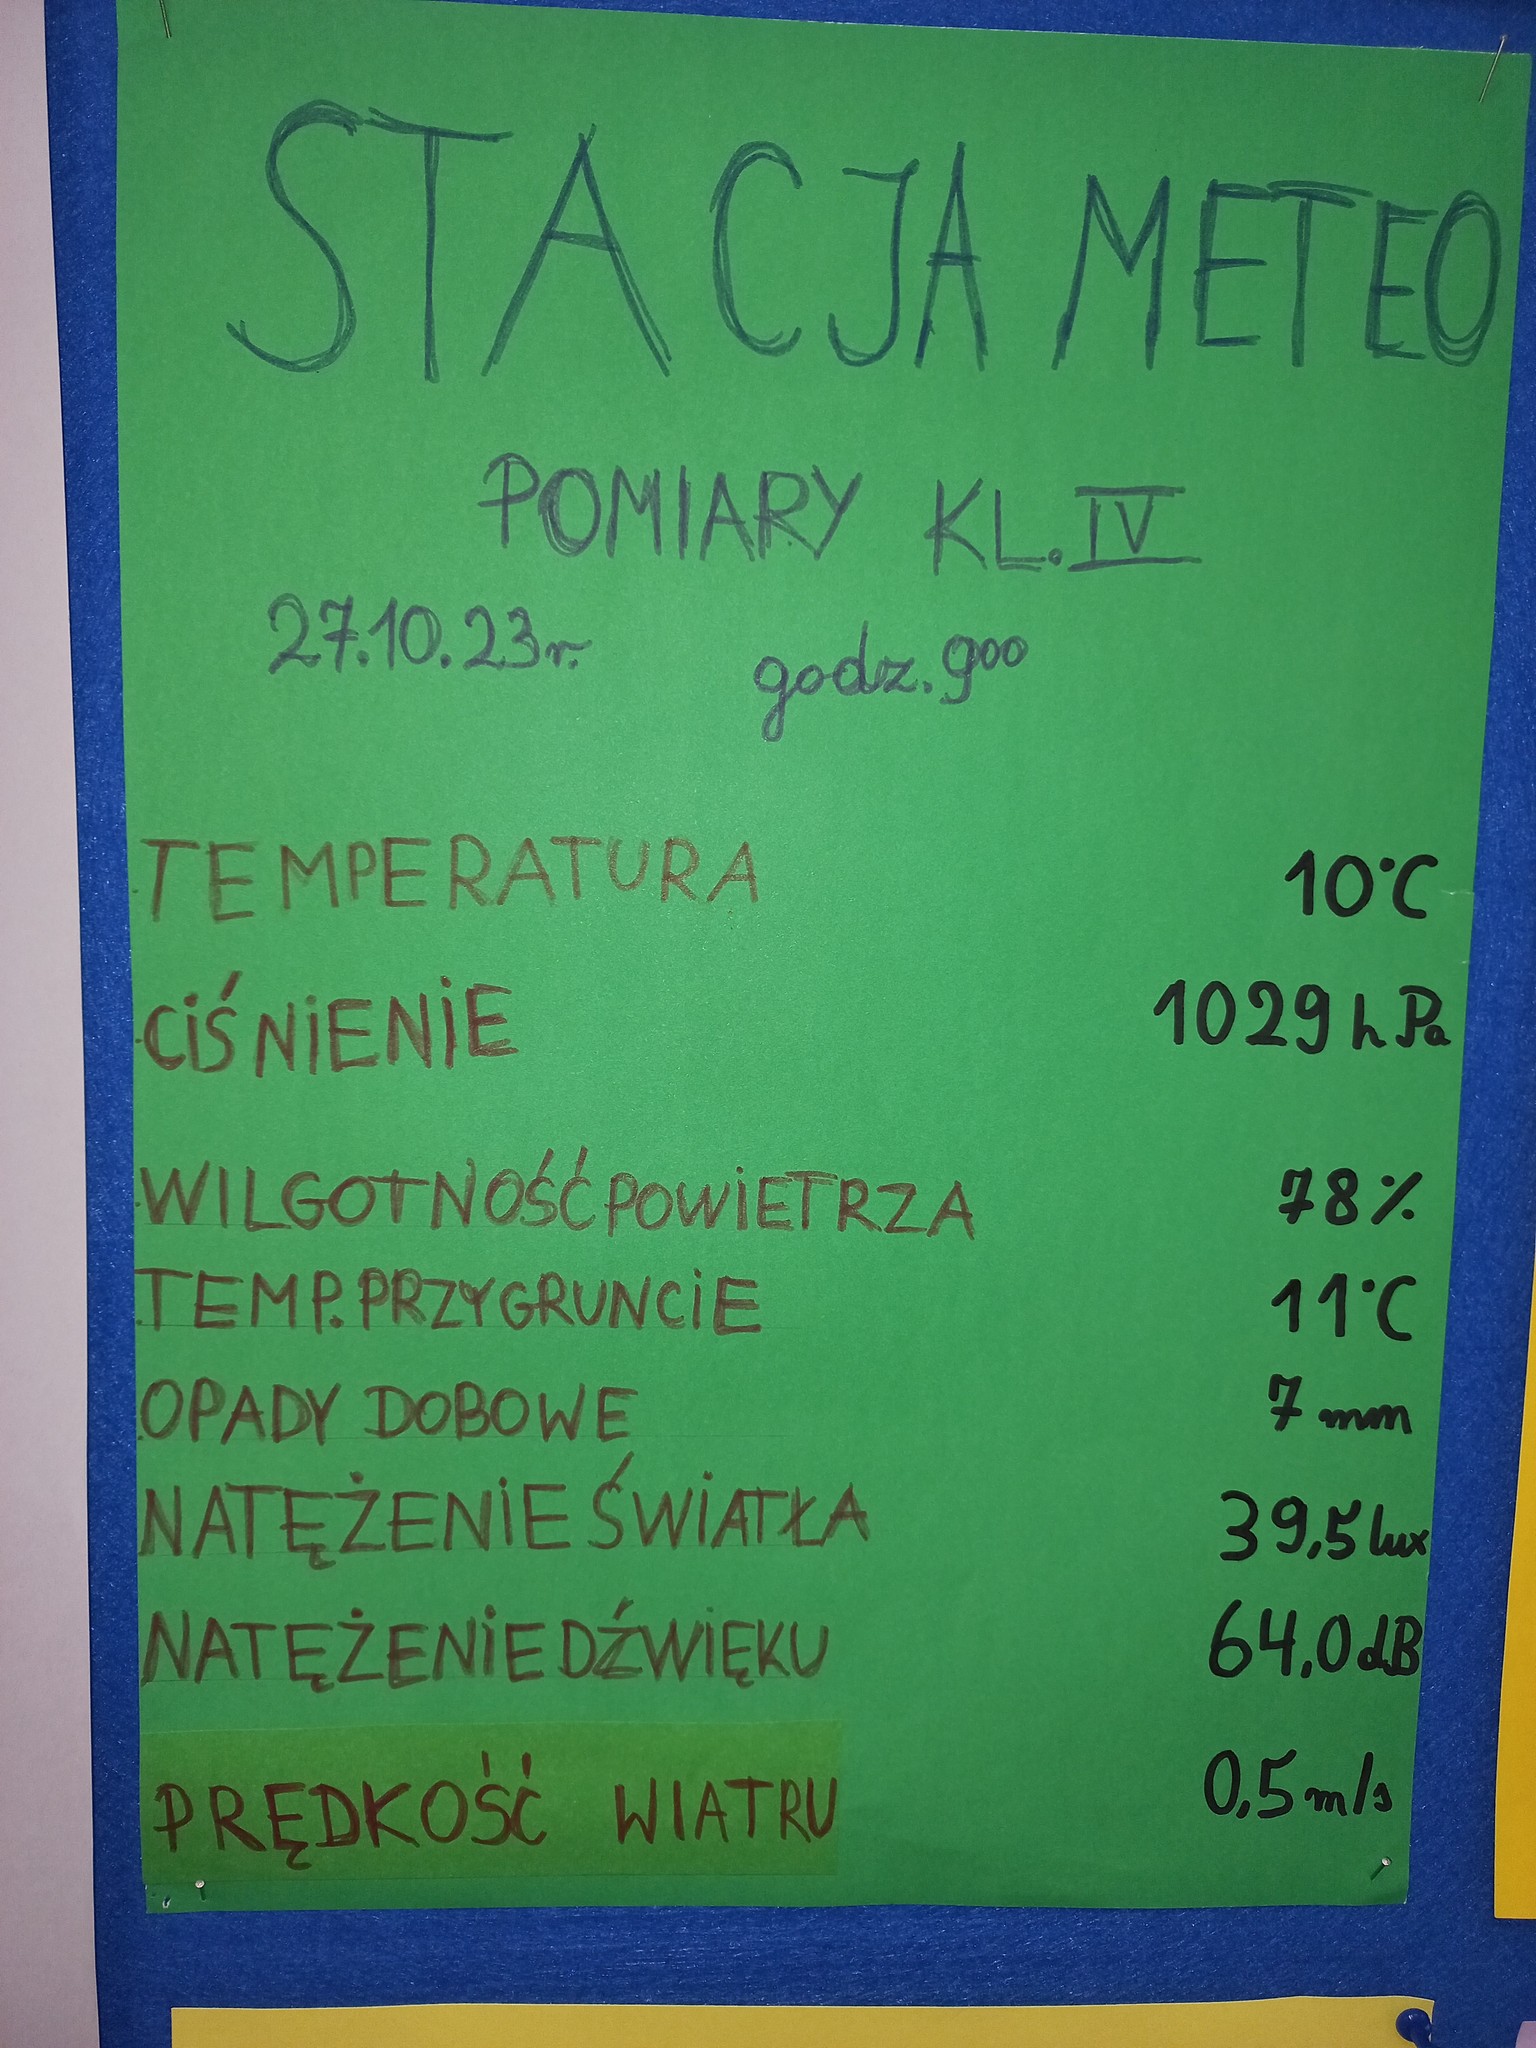 STACJA METEO
POMIARY KL. IV
27.10.23r. godz. 9⁰⁰
TEMPERATURA 10°C
CIŚNIENIE 1029 hPa
WILGOTNOŚĆ POWIETRZA 78%
TEMP. PRZY GRUNCIE 11°C
OPADY DOBOWE 7 mm
NATĘŻENIE ŚWIATŁA 39,5 lux
NATĘŻENIE DŹWIĘKU 64,0 dB
PRĘDKOŚĆ WIATRU 0,5 m/s